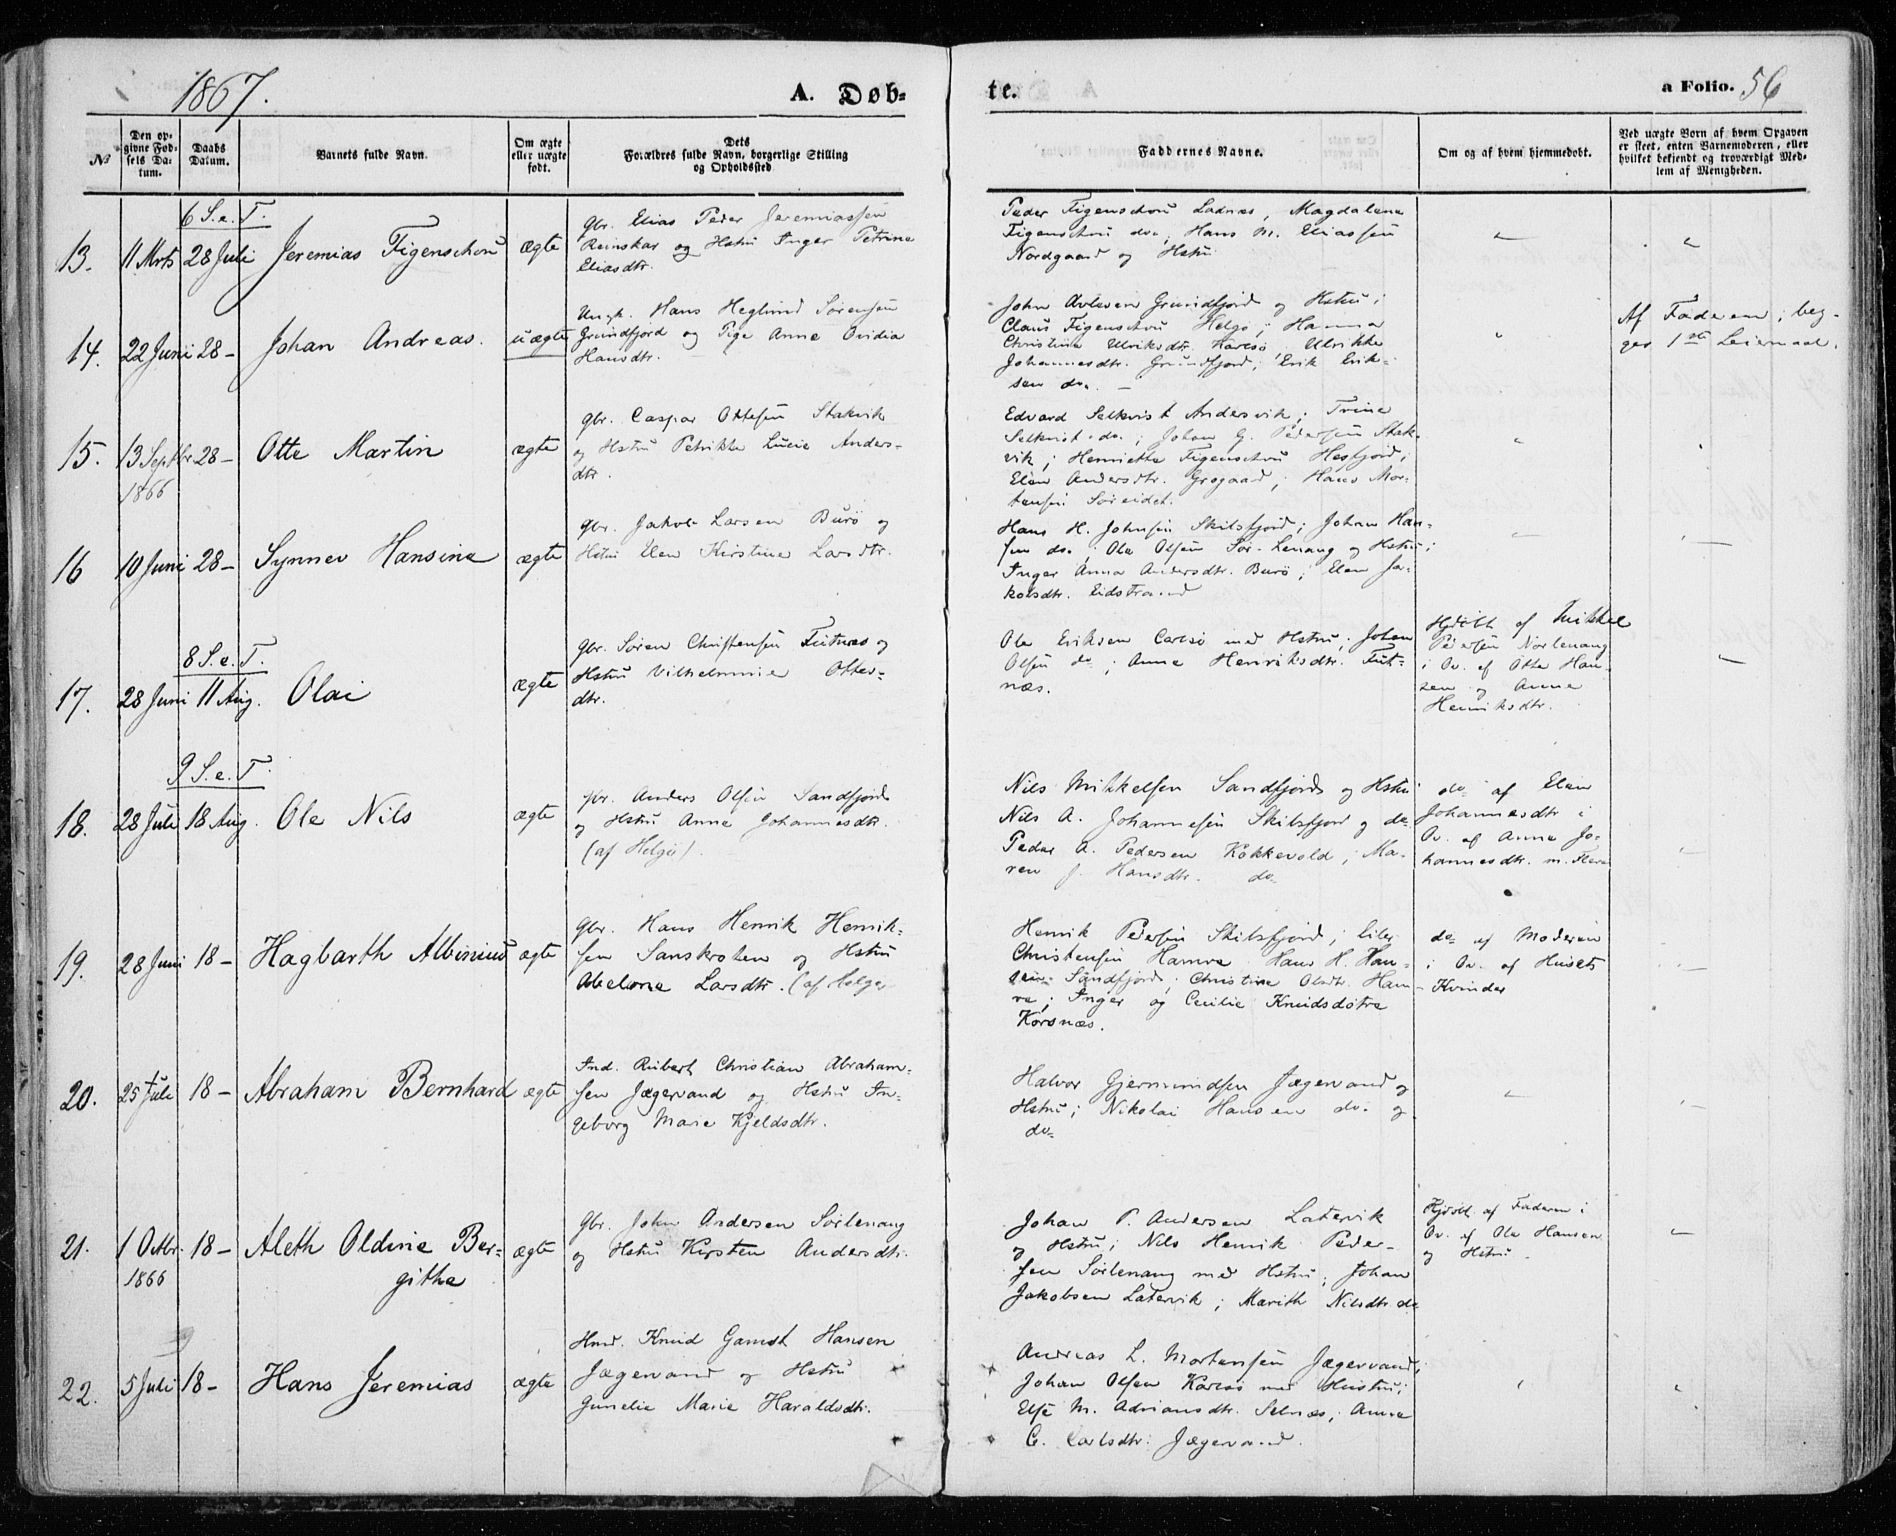 1867.
A. Døb-
te.
a Folio. 56
No
Den op-
givne Fød-
sels Da-
tum.
Daabs
Datum.
Barnets fulde Navn.
Om ægte
eller uægte
født.
Dets
Forældres fulde Navn, borgerlige Stilling
og Opholdssted
Faddernes Navne.
Om og af hvem hjemmedøbt.
Ved uægte Børn af hvem Opgaven
er skeet, enten Barnemoderen, eller
hvilket bekjendt og troværdigt Med-
lem af Menigheden.
6 S. e. T.
13. 11 Mrts 28 Juli Jeremias Figenschou ægte
Gbr. Elias Peder Jeremiassen
Reinskar og Hstru Inger Petrine
Eliasdtr.
Peder Figenschou Ladnæs, Magdalena
Figenschou do., Hans M. Eliassen
Nordgaard og Hstru
14. 22 Juni 28 - Johan Andreas. uægte
Ungk. Hans Heglund Sørensen
Grundfjord og Pige Anne Ovidia
Hansdtr.
John Grundfjord og Hstru;
Claus Figenschou Helgø; Hanna
Christine Ulriksdtr. Karlsø Ulrikke
Johannesdtr. Grundfjord; Erik Erik-
sen do. -
Af Faderen; beg-
ges 1ste Leiermaal.
15. 13 Septbr 28 - Otte Martin ægte
1866
Gbr. Caspar Ottesen Stakvik
og Hstru Petrikke Lucie Anders-
dtr.
Edvard Selkvist Andersvik; Trine
Selkvist do.; Johan G. Pedersen Stak-
vik; Henriette Figenschou Hesfjord;
Elen Andersdtr. Grøgaard; Hans Mor-
tensen Søreidet.
16 10 Juni 28 - Synnev Hansine ægte
Gbr. Jakob Larsen Burø og
Hstru Elen Kirstine Larsdtr.
Hans H. Johnsen Skilsfjord; Johan Han-
sen do.; Ole Olsen Sør-Lenang og Hstru;
Inger Anna Andersdtr. Burø; Elen Ja-
kobsdtr. Eidstrand
8 S. e. T.
17. 28 Juni 11 Aug. Olai ægte
Gbr. Søren Christensen Futnæs og
Hstru Vilhelmine Otters-
dtr.
Ole Eriksen Carlsø med Hstru; Johan
Olsen do; Anne Henriksdtr. Fut-
næs.
Hjdøbt af Mikkel
Pedersen Norlenang
i Ov. af Otte Han-
sen og Anne
Henriksdtr.
9 S. e. T.
18. 28 Juli 18 Aug. Ole Nils ægte
Gbr. Anders Olsen Sandfjord
og Hstru Anne Johannesdtr.
(af Helgø).
Nils Mikkelsen Sandfjord og Hstru
Nils A. Johannesen Skilsfjord og do
Peder A. Pedersen Kokkevold; Ma-
ren J. Hansdtr. do
do af Elen
Johannesdtr i
Ov. af Anne Jo-
hannesdtr. m. Flere
19. 28 Juni 18 - Hagbarth Albinius ægte
Gbr. Hans Henrik Henrik-
sen Sanskroken og Hstru
Abelone Larsdtr. (af Helgø
Henrik Pedersen Skilsfjord;
Christensen Hamre Hans H. Han-
sen Sandfjord; Christine Olsdtr. Ham-
re; Inger og Cecilie Knudsdøtre
Korsnæs.
do af Moderen
i Ov. af Husets
Kvinder
20. 25 Juli 18 - Abraham Bernhard ægte
Ind. Rubert Christian Abraham-
sen Jægervand og Hstru In-
geborg Marie Kjeldsdtr.
Halvor Gjermundsen Jægervand og
Hstru; Nikolai Hansen do. og
do
21. 1 Octbr. 18 - Aleth Oldine Ber- ægte
1866
githe
Gbr. John Andersen Sørlenang
og Hstru Kirsten Andersdtr.
Johan P. Andersen Latervik
og Hstru; Nils Henrik Peder-
sen Sørlenang med Hstru; Johan
Jakobsen Latervik; Marith Nilsdtr do
Hjdøbt af Faderen i
Ov. af Ole Hansen
og Hstru
22. 5 Juli 18 - Hans Jeremias ægte
Hmd. Knud Gamst Hansen
Jægervand og Hstru
Gunelie Marie Haraldsdtr.
Andreas L. Mortensen Jægervand;
Johan Olsen Karlsø med Hustru;
Else M. Adriansdtr. Selnæs; Anna
C. Carlsdtr. Jægervand.